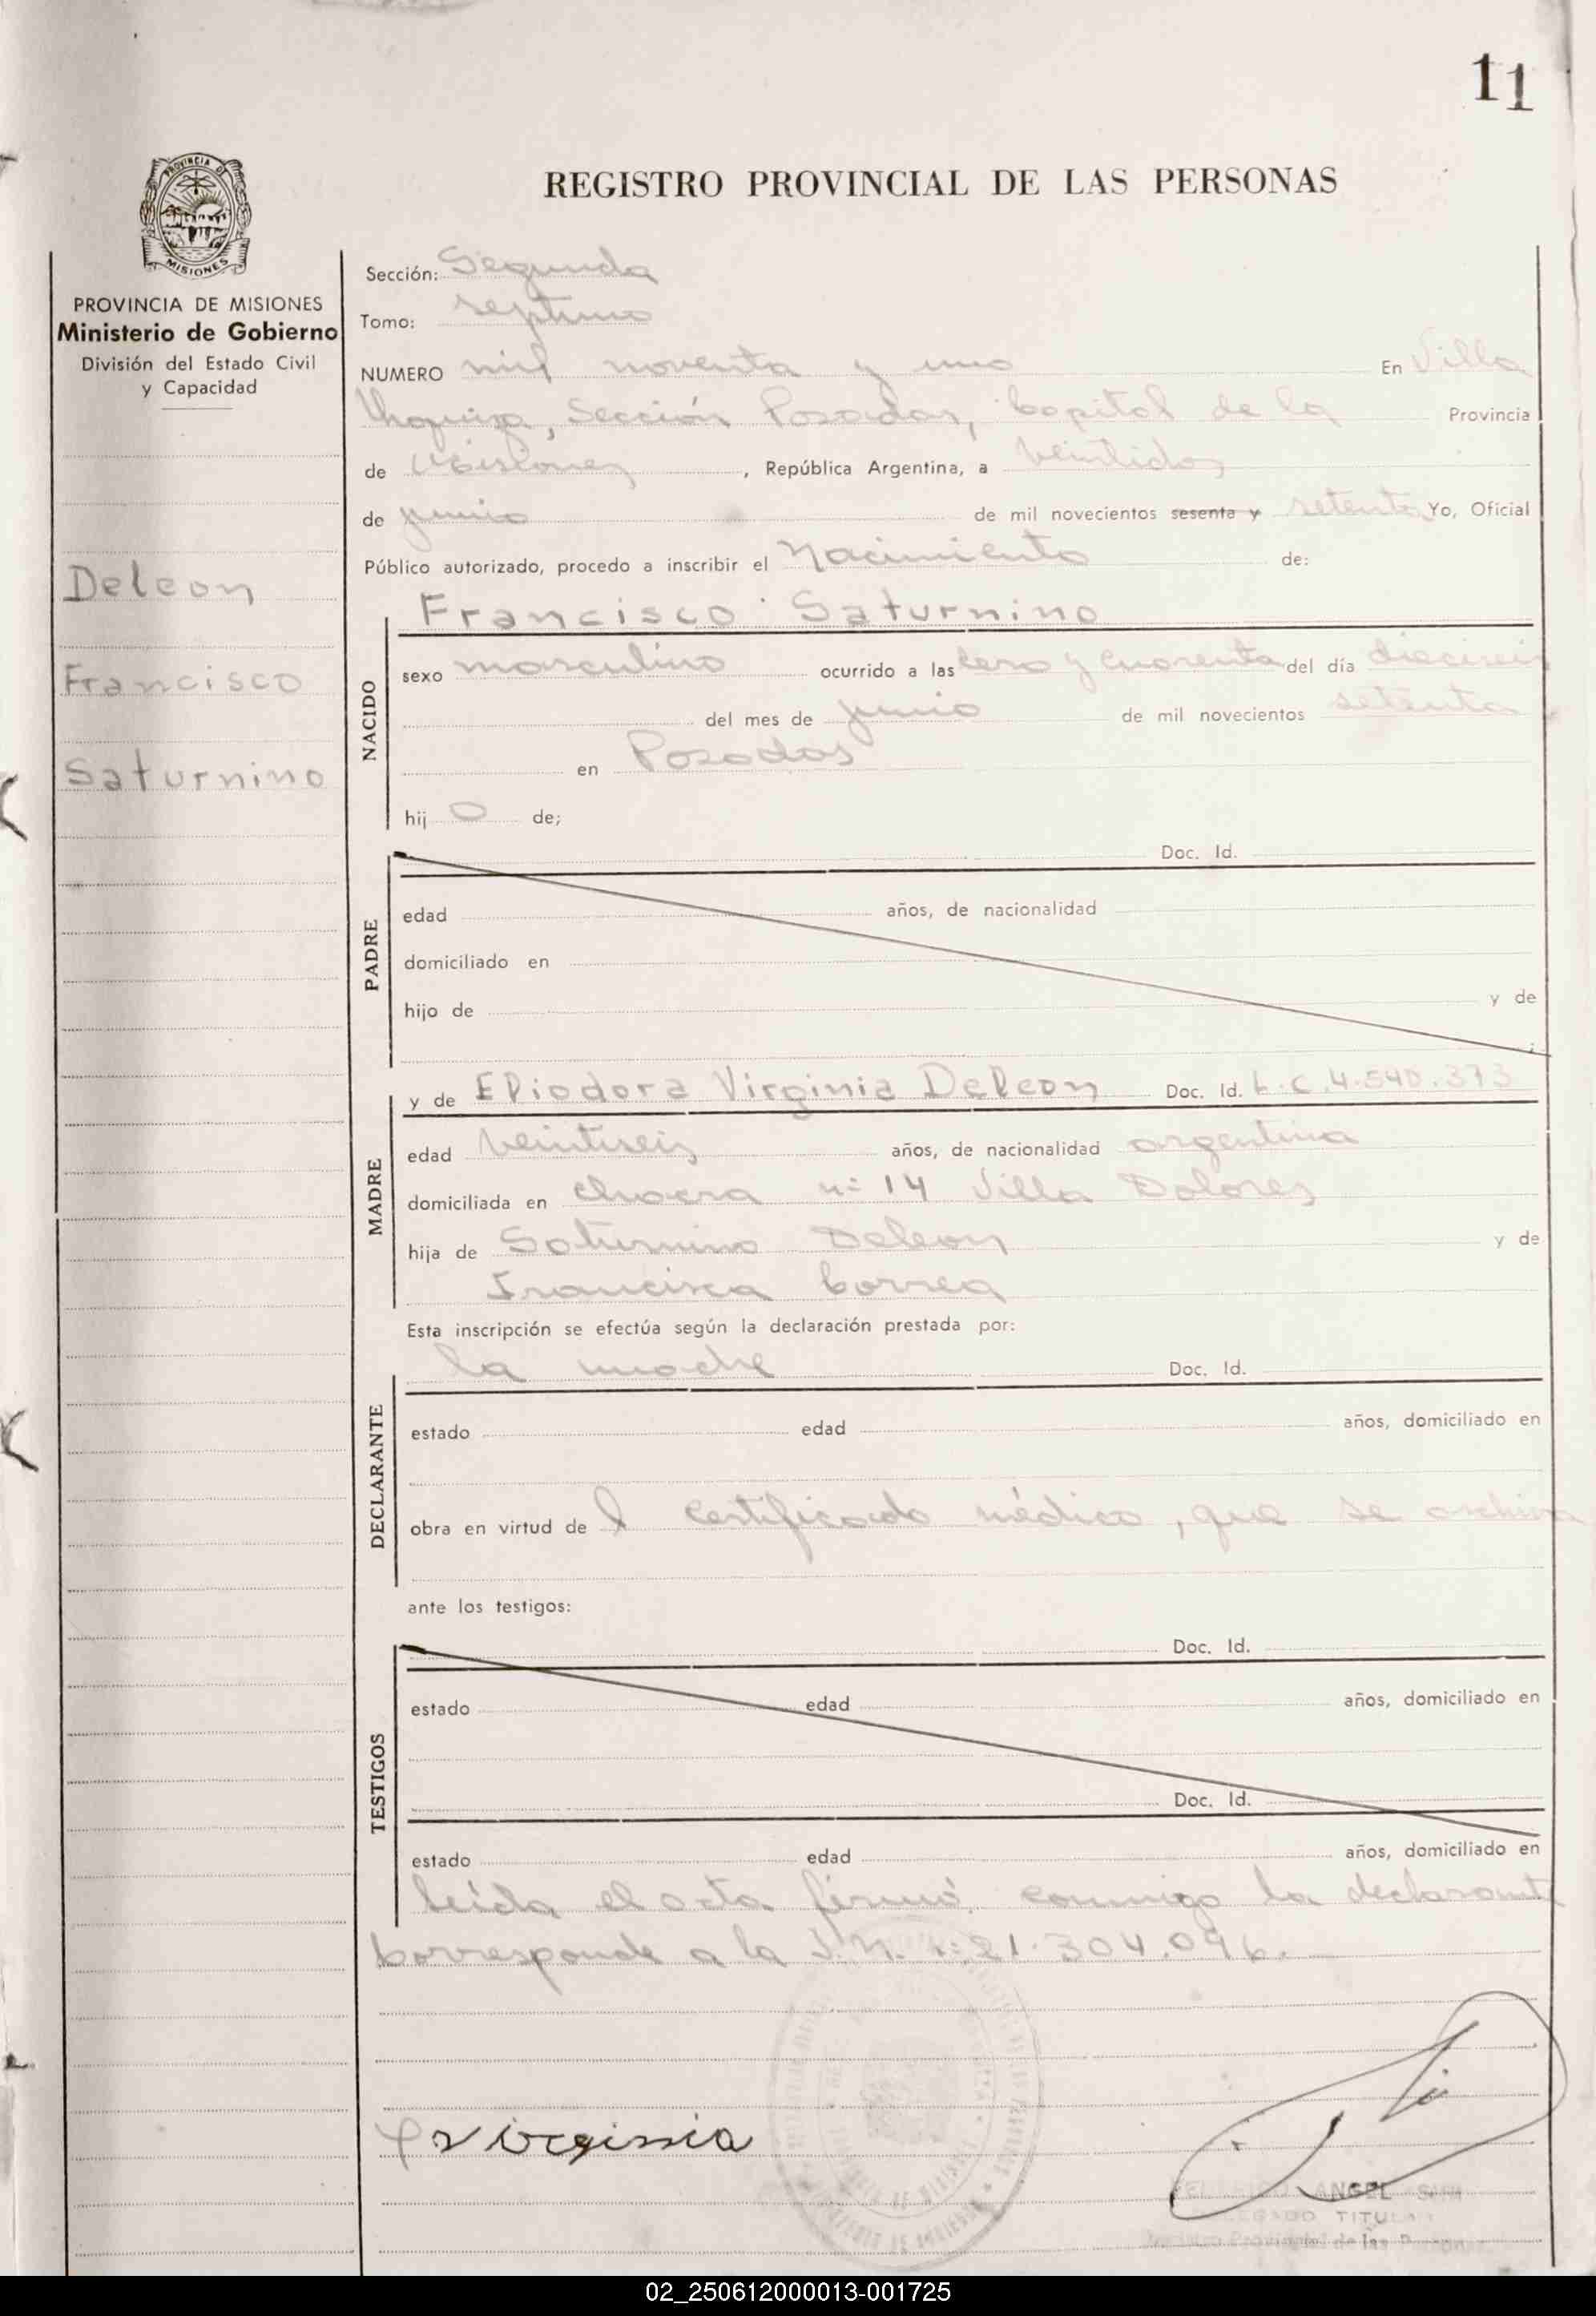 11
PROVINCIA DE
MISIONES
REGISTRO PROVINCIAL DE LAS PERSONAS
PROVINCIA DE MISIONES
Ministerio de Gobierno
División del Estado Civil
y Capacidad
Deleon
Francisco
Saturnino
Sección: Segunda
Tomo: septimo
NUMERO mil noventa y uno En Villa
Urquiza, Sección Posadas, Capital de la Provincia
de Misiones, República Argentina, a veintidos
de junio de mil novecientos sesenta y setenta Yo, Oficial
Público autorizado, procedo a inscribir el Nacimiento de:
Francisco Saturnino
NACIDO
sexo masculino ocurrido a las cero y cuarenta del día dieciseis
del mes de junio de mil novecientos setenta
en Posadas
hij o de;
Doc. Id.
PADRE
edad años, de nacionalidad
domiciliado en
hijo de y de
y de Eliodora Virginia Deleon Doc. Id. L.C.4.540.373
MADRE
edad veintiseis años, de nacionalidad argentina
domiciliada en chacra nº 14 Villa Dolores
hija de Saturnino Deleon y de
Francisca Correa
Esta inscripción se efectúa según la declaración prestada por:
la madre Doc. Id.
DECLARANTE
estado edad años, domiciliado en
obra en virtud de l certificado médico, que se archiva
ante los testigos:
Doc. Id.
TESTIGOS
estado edad años, domiciliado en
Doc. Id.
estado edad años, domiciliado en
leída el acta firmó conmigo la declarante
Corresponde a la 21.304.096.
Virginia
ANGEL
TITULAR